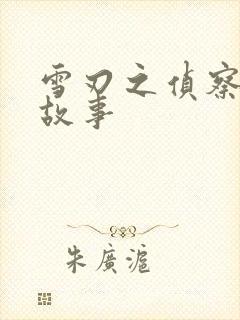 雪刃之偵察
故事
朱廣滬